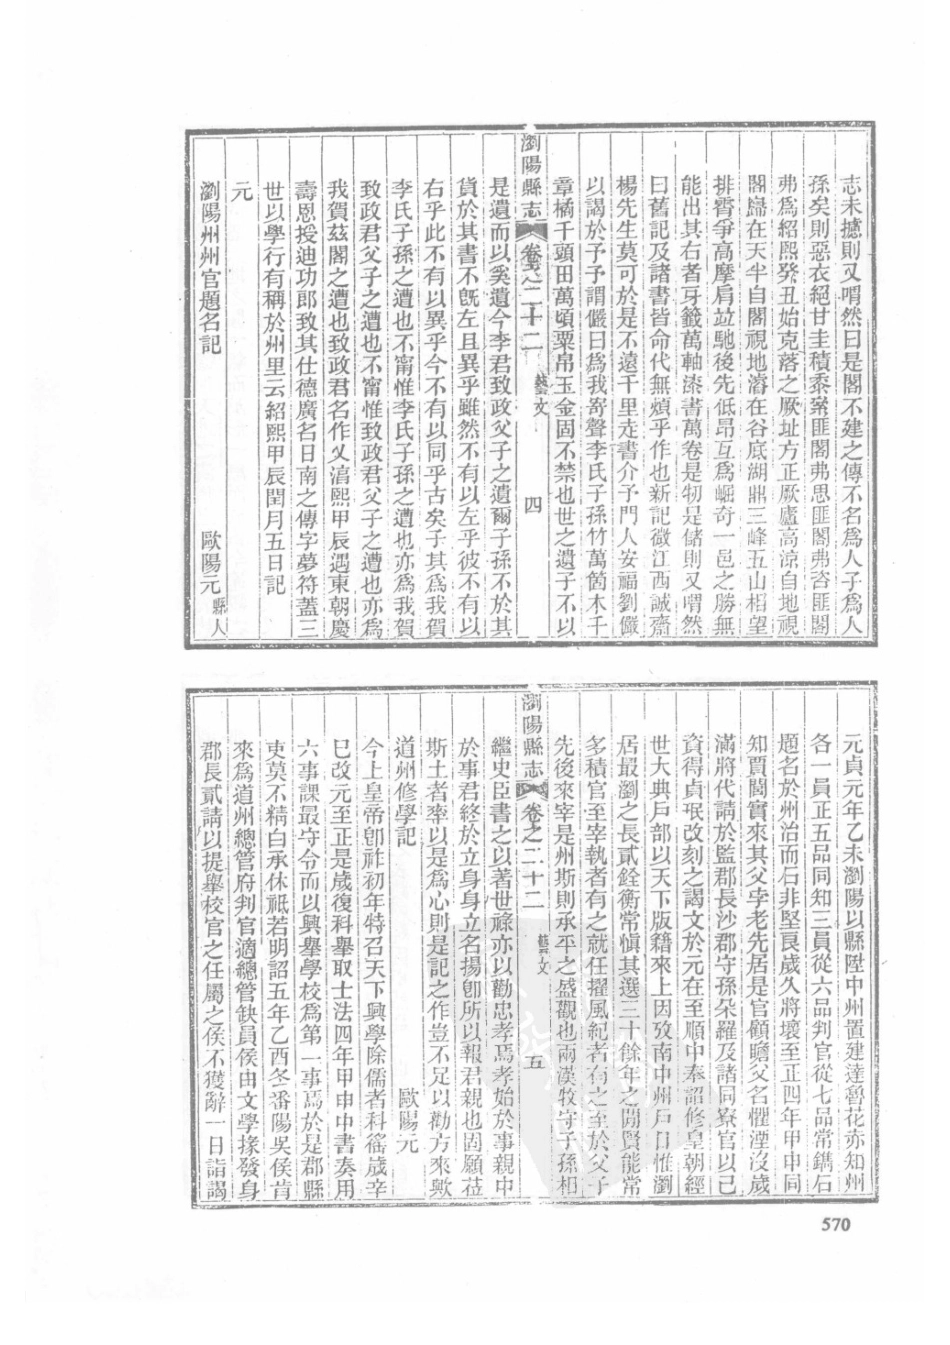 志未攄則又喟然曰是閣不建之傳不名爲人子爲人
孫矣則惡衣絕甘圭積黍絫匪閣弗思匪閣弗咨匪閣
弗爲紹熙癸丑始克落之厥址方正厥廬高涼自地視
閣歸在天半自閣視地濬在谷底湖鼎三峰五山相望
排霄爭高摩肩竝馳後先低昂互爲崛奇一邑之勝無
能出其右者牙籤萬軸漆書萬卷是牣是儲則又喟然
曰舊記及諸書皆命代無煩乎作也新記微江西誠齋
楊先生莫可於是不遠千里走書介予門人安福劉儼
以謁於予予謂儼曰爲我寄聲李氏子孫竹萬箇木千
章橘千頭田萬頃粟帛玉金固不禁也世之遺子不以
瀏陽縣志 卷之二十二 藝文 四
是遺而以奚遺今李君致政父子之遺爾子孫不於其
貨於其書不旣左且異乎雖然不有以左乎彼不有以
右乎此不有以異乎今不有以同乎古矣子其爲我賀
李氏子孫之遭也不甯惟李氏子孫之遭也亦爲我賀
致政君父子之遭也不甯惟致政君父子之遭也亦爲
我賀茲閣之遭也致政君名作乂湻熙甲辰遇東朝慶
壽恩授迪功郎致其仕德廣名日南之傳字夢符蓋三
世以學行有稱於州里云紹熙甲辰閏月五日記
元
瀏陽州州官題名記 歐陽元 縣人
元貞元年乙未瀏陽以縣陞中州置建達魯花赤知州
各一員正五品同知三員從六品判官從七品常鐫石
題名於州治而石非堅良歲久將壞至正四年甲申同
知賈閭實來其父孛老先居是官顧瞻父名懼湮沒歲
滿將代請於監郡長沙郡守孫朵羅及諸同寮官以己
資得貞珉改刻之謁文於元在至順中奉詔修皇朝經
世大典戶部以天下版籍來上因攷南中州戶口惟瀏
居最瀏之長貳銓衡常愼其選三十餘年之閒賢能常
多積官至宰執者有之就任擢風紀者有之至於父子
先後來宰是州斯則承平之盛觀也兩漢牧守子孫相
瀏陽縣志 卷之二十二 藝文 五
繼史臣書之以著世祿亦以勸忠孝焉孝始於事親中
於事君終於立身身立名揚卽所以報君親也固願莅
斯土者率以是爲心則是記之作豈不足以勸方來歟
道州修學記 歐陽元
今上皇帝卽祚初年特召天下興學除儒者科徭歲辛
巳改元至正是歲復科舉取士法四年甲申中書奏用
六事課最守令而以興舉學校爲第一事焉於是郡縣
吏莫不精白承休祗若明詔五年乙酉冬番陽吳侯肯
來爲道州總管府判官適總管缺員侯由文學掾發身
郡長貳請以提舉校官之任屬之侯不獲辭一日詣謁
570